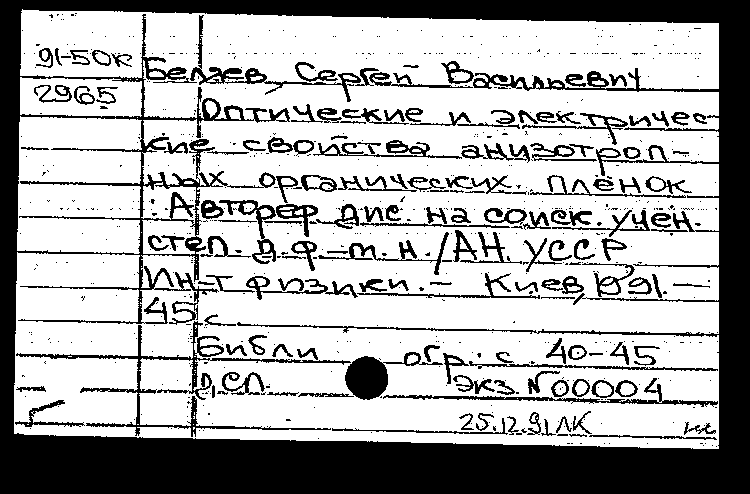 91-50к
2965
Беляев, Сергей Васильевич
Оптические и электричес-
кие свойства анизотроп-
ных органических плёнок
: Автореф дис. на соиск. учен.
степ. д.ф-м.н. / АН УССР,
Ин-т физики. - Киев, 1991. -
45 с.
Библиогр.: с. 40-45
ДСП. Экз. N00004
25.12.91 ЛК